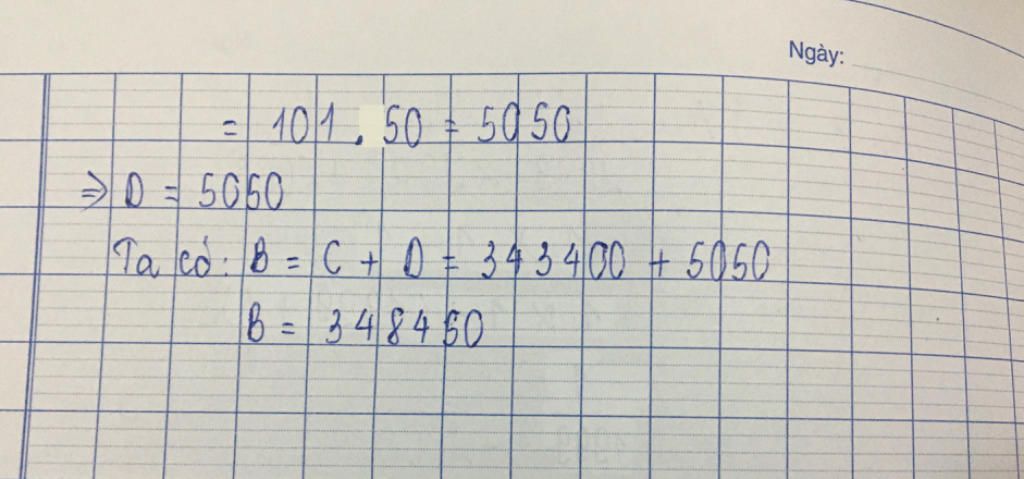 Ngày:
= 101 . 50 = 5050
⇒ D = 5050
Ta có: B = C + D = 343400 + 5050
B = 348450